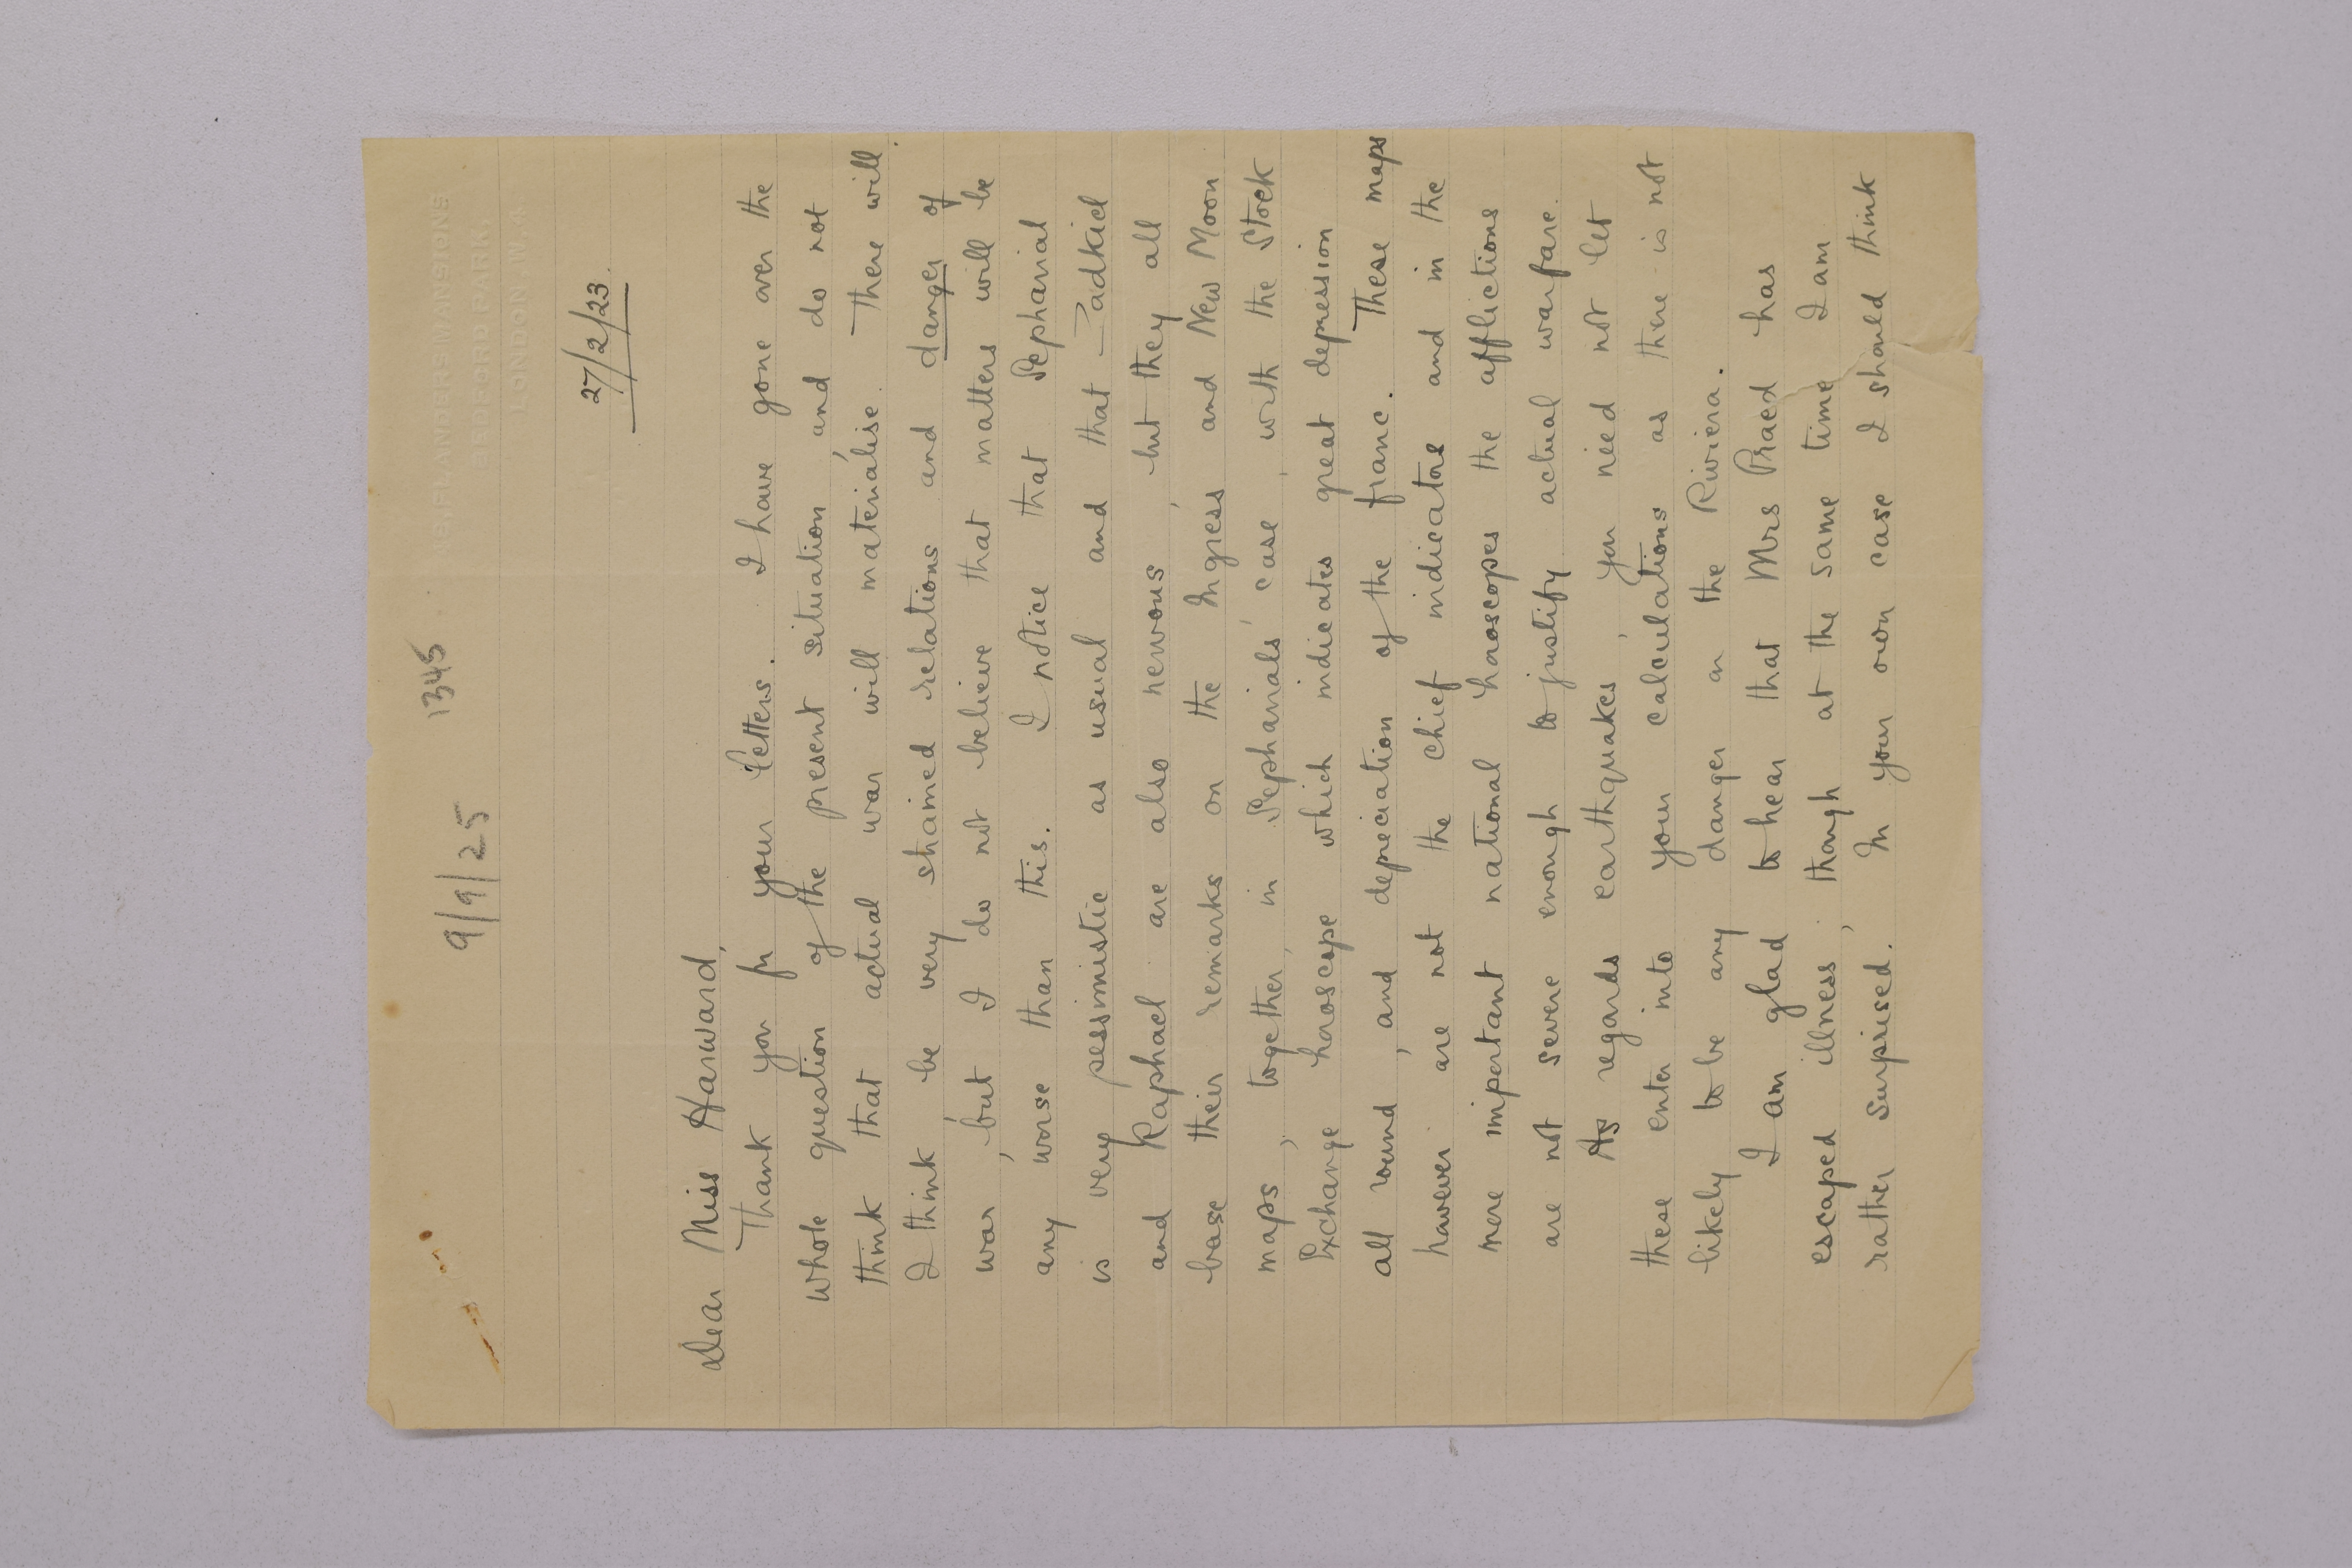 9/9/25 1345
FLANDERS MANSIONS
BEDFORD PARK,
LONDON, W.
27/2/23.
Dear Miss Harward,
Thank you for your letters. I have gone over the
whole question of the present situation, and do not
think that actual war will materialise. There will
I think be very strained relations and danger of
war, but I do not believe that matters will be
any worse than this. I notice that Sepharial
is very pessimistic as usual and that Zadkiel
and Raphael are also nervous, but they all
base their remarks on the Ingress and New Moon
maps, together, in Sepharials' case, with the Stock
Exchange horoscope which indicates great depression
all round, and depreciation of the franc. These maps
however are not the chief indicators and in the
more important national horoscopes the afflictions
are not severe enough to justify actual warfare.
As regards earthquakes, you need not let
these enter into your calculations as there is not
likely to be any danger on the Riviera.
I am glad to hear that Mrs Praed has
escaped illness, though at the same time I am
rather surprised. In your own case I should think